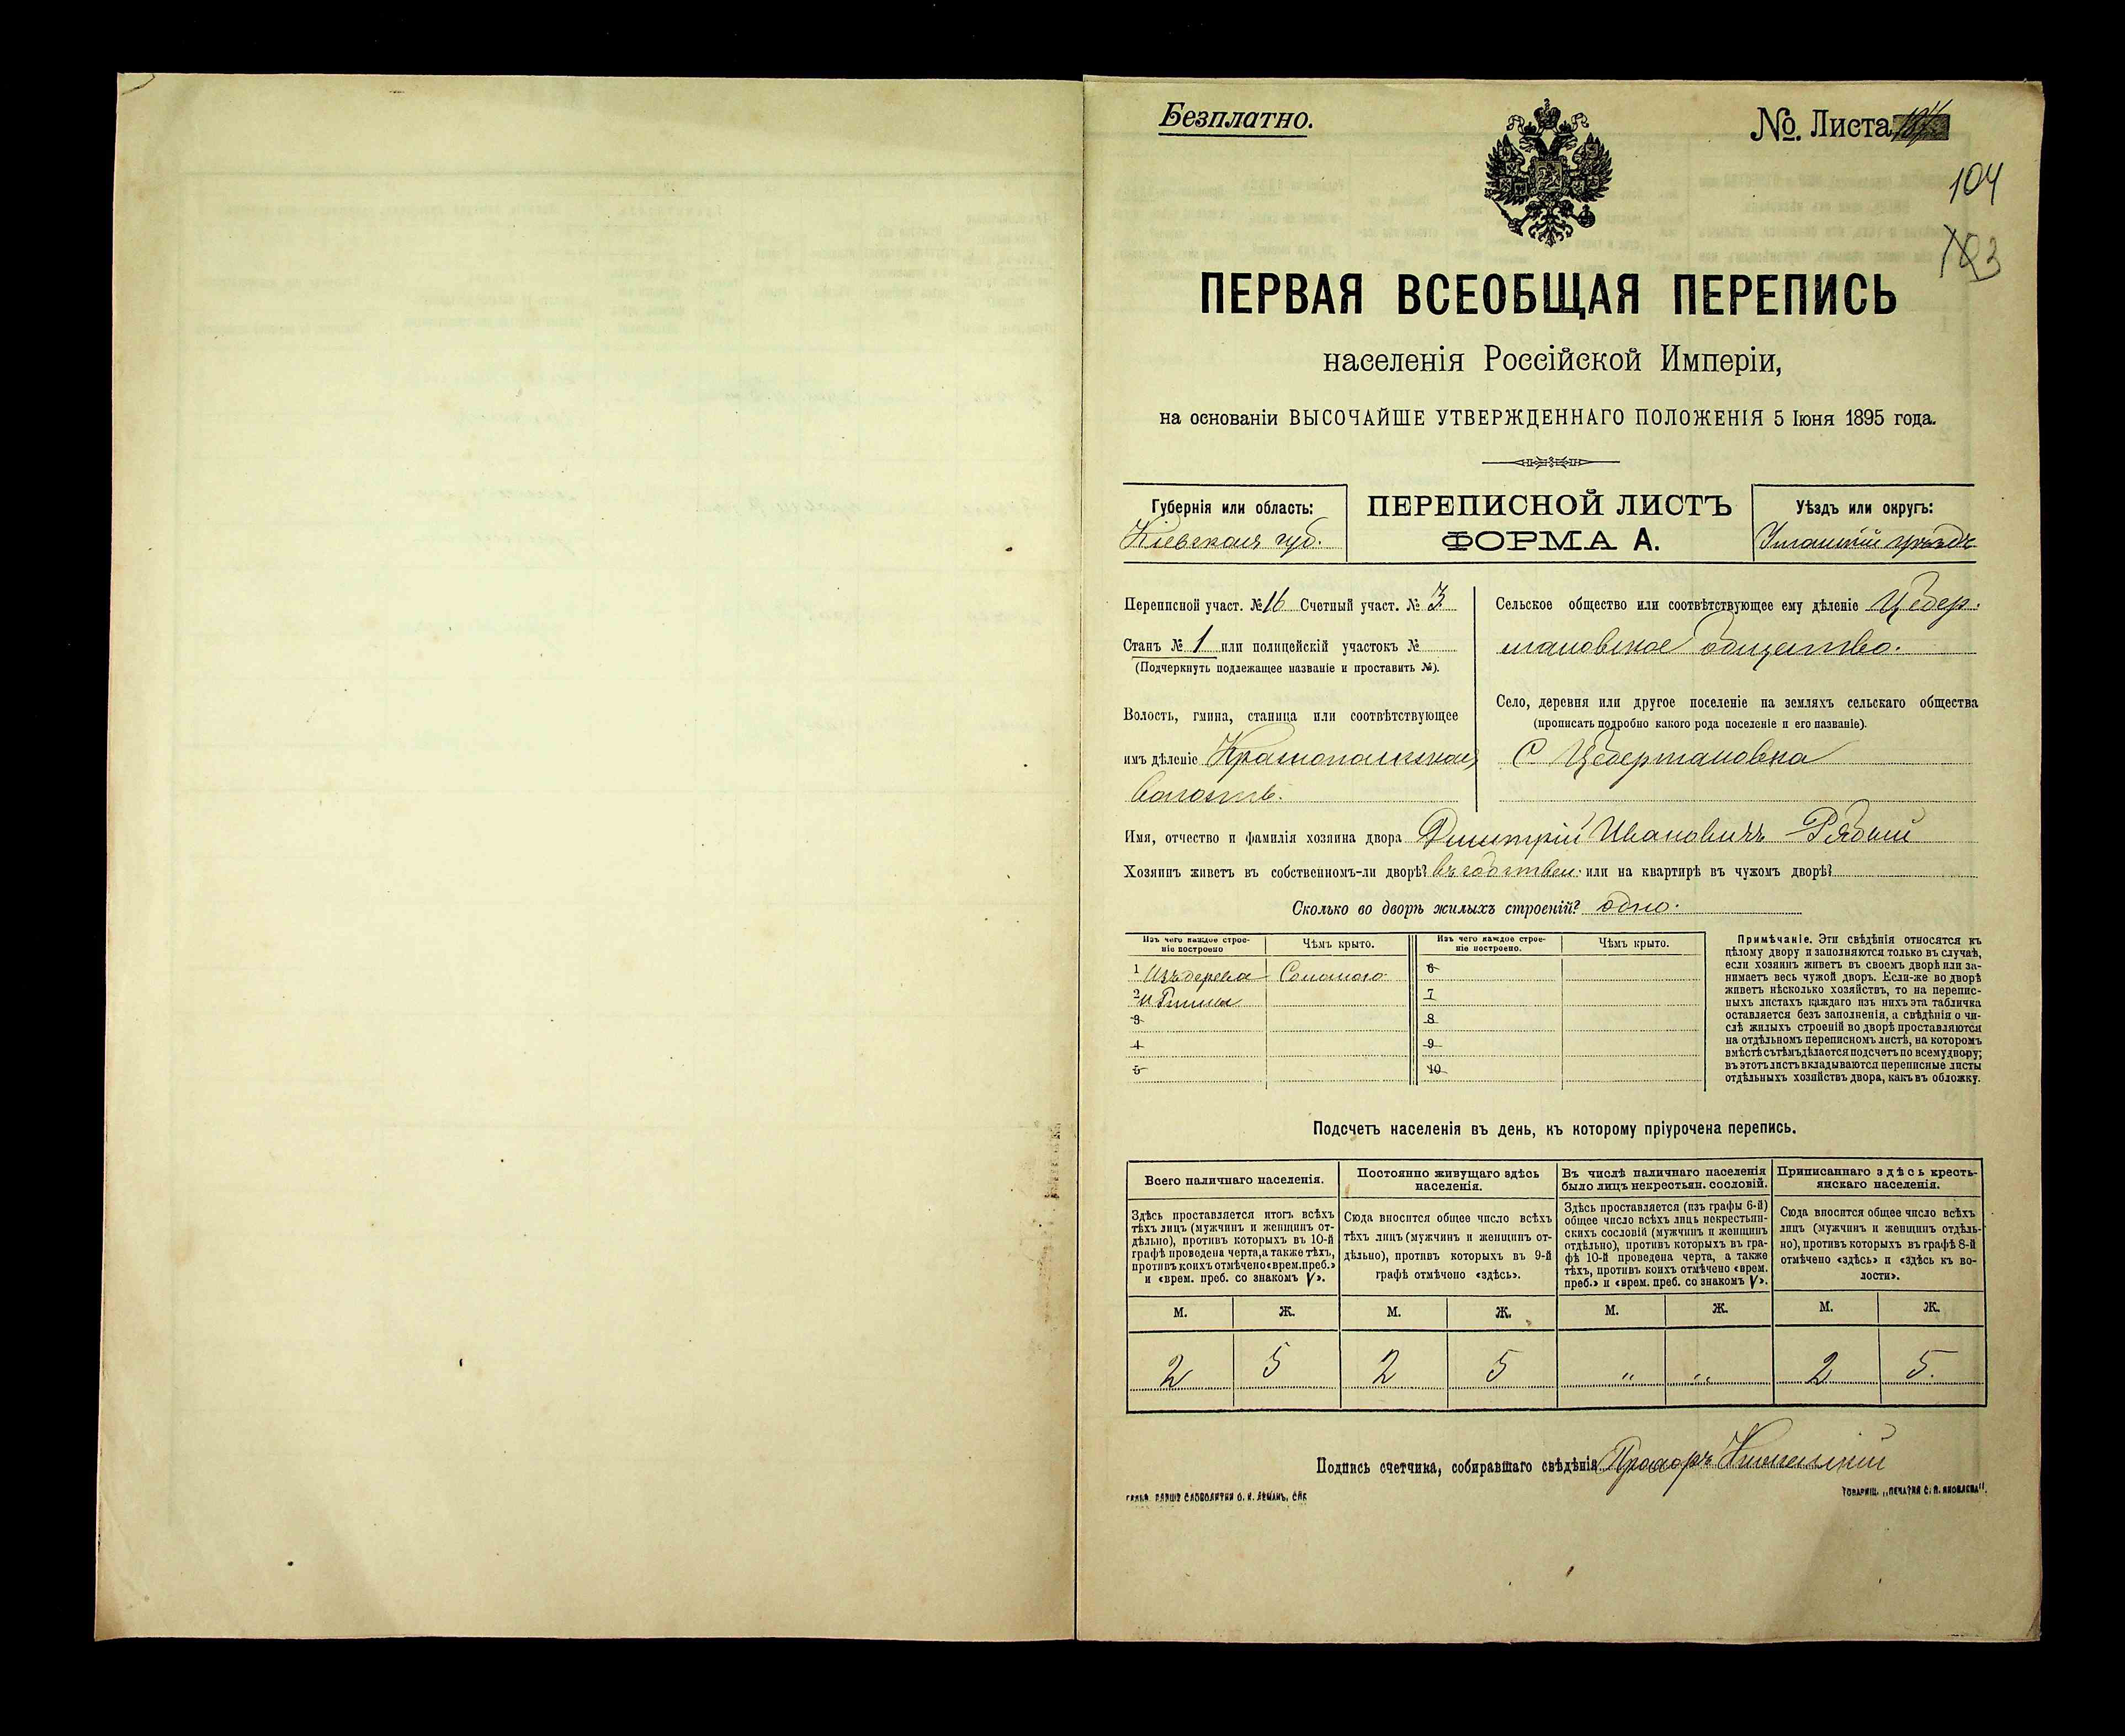 Безплатно.
№. Листа
104
103
ПЕРВАЯ ВСЕОБЩАЯ ПЕРЕПИСЬ
населенія Россійской Имперіи,
на основаніи ВЫСОЧАЙШЕ УТВЕРЖДЕННАГО ПОЛОЖЕНІЯ 5 Іюня 1895 года.
Губернія или область:
Кіевская губ.
ПЕРЕПИСНОЙ ЛИСТЪ
ФОРМА А.
Уѣздъ или округъ:
Уманскій уѣздъ
Переписной участ. № 16 Счетный участ. № 3.
Станъ № 1 или полицейскій участокъ №
(Подчеркнуть подлежащее названіе и проставить №).
Волость, гмина, станица или соотвѣтствующее
имъ дѣленіе Краснопольская
волость.
Сельское общество или соотвѣтствующее ему дѣленіе Цебер-
мановское общество.
Село, деревня или другое поселеніе на земляхъ сельскаго общества
(прописать подробно какого рода поселеніе и его названіе).
С Цебермановка
Имя, отчество и фамилія хозяина двора Дмитрій Ивановичъ Рябый
Хозяинъ живетъ въ собственномъ-ли дворѣ? въ собствен. или на квартирѣ въ чужомъ дворѣ?
Сколько во дворѣ жилыхъ строеній? одно.
Изъ чего каждое строе-
ніе построено
Чѣмъ крыто.
Изъ чего каждое строе-
ніе построено.
Чѣмъ крыто.
1 Изъ дерева Соломою 6
2 и Глины 7
3 8
4 9
5 10
Примѣчаніе. Эти свѣдѣнія относятся къ
цѣлому двору и заполняются только въ случаѣ,
если хозяинъ живетъ въ своемъ дворѣ или за-
нимаетъ весь чужой дворъ. Если-же во дворѣ
живетъ нѣсколько хозяйствъ, то на перепис-
ныхъ листахъ каждаго изъ нихъ эта табличка
оставляется безъ заполненія, а свѣдѣнія о чи-
слѣ жилыхъ строеній во дворѣ проставляются
на отдѣльномъ переписномъ листѣ, на которомъ
вмѣстѣ съ тѣмъ дѣлается подсчетъ по всему двору;
въ этотъ листъ вкладываются переписные листы
отдѣльныхъ хозяйствъ двора, какъ въ обложку.
Подсчетъ населенія въ день, къ которому пріурочена перепись.
Всего наличнаго населенія.
Здѣсь проставляется итогъ всѣхъ
тѣхъ лицъ (мужчинъ и женщинъ от-
дѣльно), противъ которыхъ въ 10-й
графѣ проведена черта, а также тѣхъ,
противъ коихъ отмѣчено «врем. преб.»
и «врем. преб. со знакомъ V».
Постоянно живущаго здѣсь
населенія.
Сюда вносится общее число всѣхъ
тѣхъ лицъ (мужчинъ и женщинъ от-
дѣльно), противъ которыхъ въ 9-й
графѣ отмѣчено «здѣсь».
Въ числѣ наличнаго населенія
было лицъ некрестьян. сословій.
Здѣсь проставляется (изъ графы 6-й)
общее число всѣхъ лицъ некрестьян-
скихъ сословій (мужчинъ и женщинъ
отдѣльно), противъ которыхъ въ гра-
фѣ 10-й проведена черта, а также
тѣхъ, противъ коихъ отмѣчено «врем.
преб.» и «врем. преб. со знакомъ V».
Приписаннаго здѣсь кресть-
янскаго населенія.
Сюда вносится общее число всѣхъ
лицъ (мужчинъ и женщинъ отдѣль-
но), противъ которыхъ въ графѣ 8-й
отмѣчено «здѣсь» и «здѣсь къ во-
лости».
М. Ж. М. Ж. М. Ж. М. Ж.
2 5 2 5 " " 2 5.
Подпись счетчика, собиравшаго свѣдѣнія Прохоръ
ТОВАРИЩ. „ПЕЧАТНЯ С. П. ЯКОВЛЕВА".